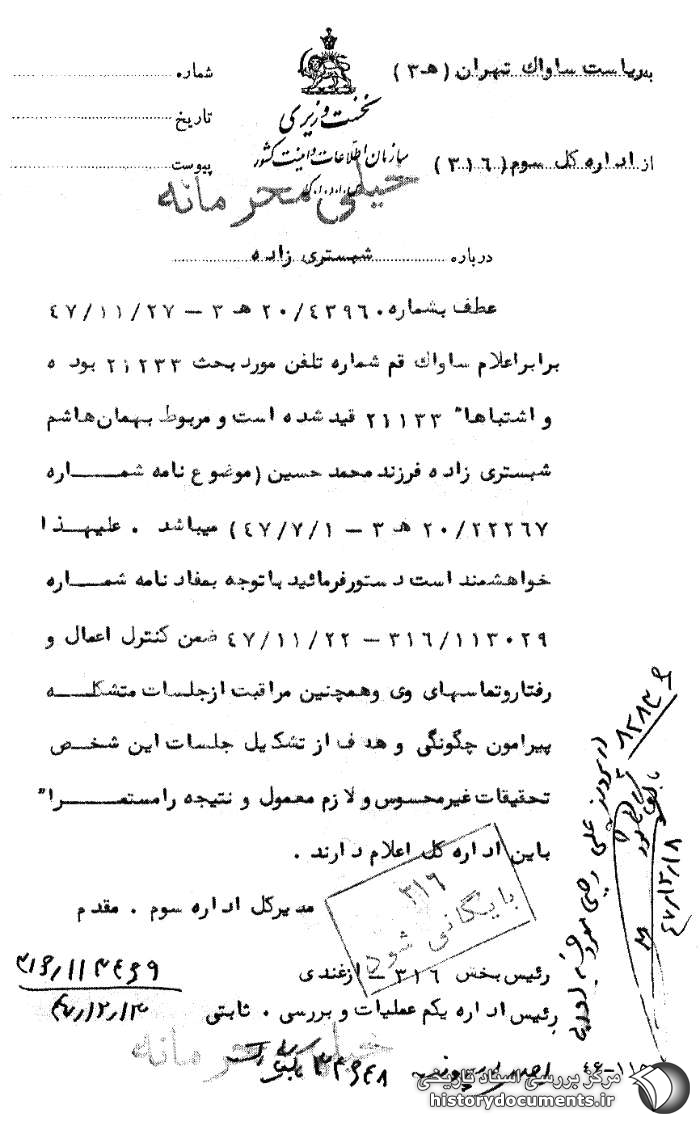 به ریاست ساواك تهران (هـ ۳)
شماره
نخست وزیری
تاریخ
سازمان اطلاعات و امنیت کشور
از اداره كل سوم (۳۱۶)
پیوست
خیلی محرمانه
درباره شبستری زاده
عطف بشماره ۲۰/۴۳۹۶۰ هـ ۳ – ۴۷/۱۱/۲۷
برابر اعلام ساواك قم شماره تلفن مورد بحث ۲۱۲۳۳ بوده
و اشتباها" ۲۱۱۳۳ قید شده است و مربوط بهمان هاشم
شبستری زاده فرزند محمد حسین (موضوع نامه شمـــــاره
۲۰/۲۲۲۶۷ هـ ۳ – ۴۷/۷/۱) میباشد . علیهذا
خواهشمند است دستور فرمائید با توجه بمفاد نامه شمـــاره
۳۱۶/۱۱۳۰۲۹ – ۴۷/۱۱/۲۲ ضمن کنترل اعمال و
رفتار و تماسهای وی و همچنین مراقبت از جلسات متشکلـــه
پیرامون چگونگی و هدف از تشکیل جلسات این شخص
تحقیقات غیر محسوس و لازم معمول و نتیجه را مستمعـــرا"
باین اداره کل اعلام دارند .
مدیر کل اداره سوم . مقدم
۳۱۶
بایگانی شود
رئیس بخش ۳۱۶ – ازغندی
۳۱۶/۱۱۴۴۶۹
رئیس اداره یکم عملیات و بررسی . ثابتی
۴۷/۱۲/۱۳
خیلی محرمانه
۴۷/۱۲/۱۸
مرکز بررسی اسناد تاریخی
historydocuments.ir